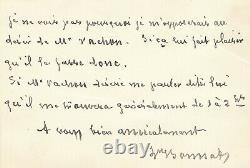 je ne vois pas pourquoi je m'opposerais au
désir de Mr Vachon. Si ça lui fait plaisir
qu'il la fasse donc.
Si Mr Vachon désire me parler dites lui
qu'il me trouvera généralement de 1 à 2 h
A vous bien amicalement
Ln Bonnat